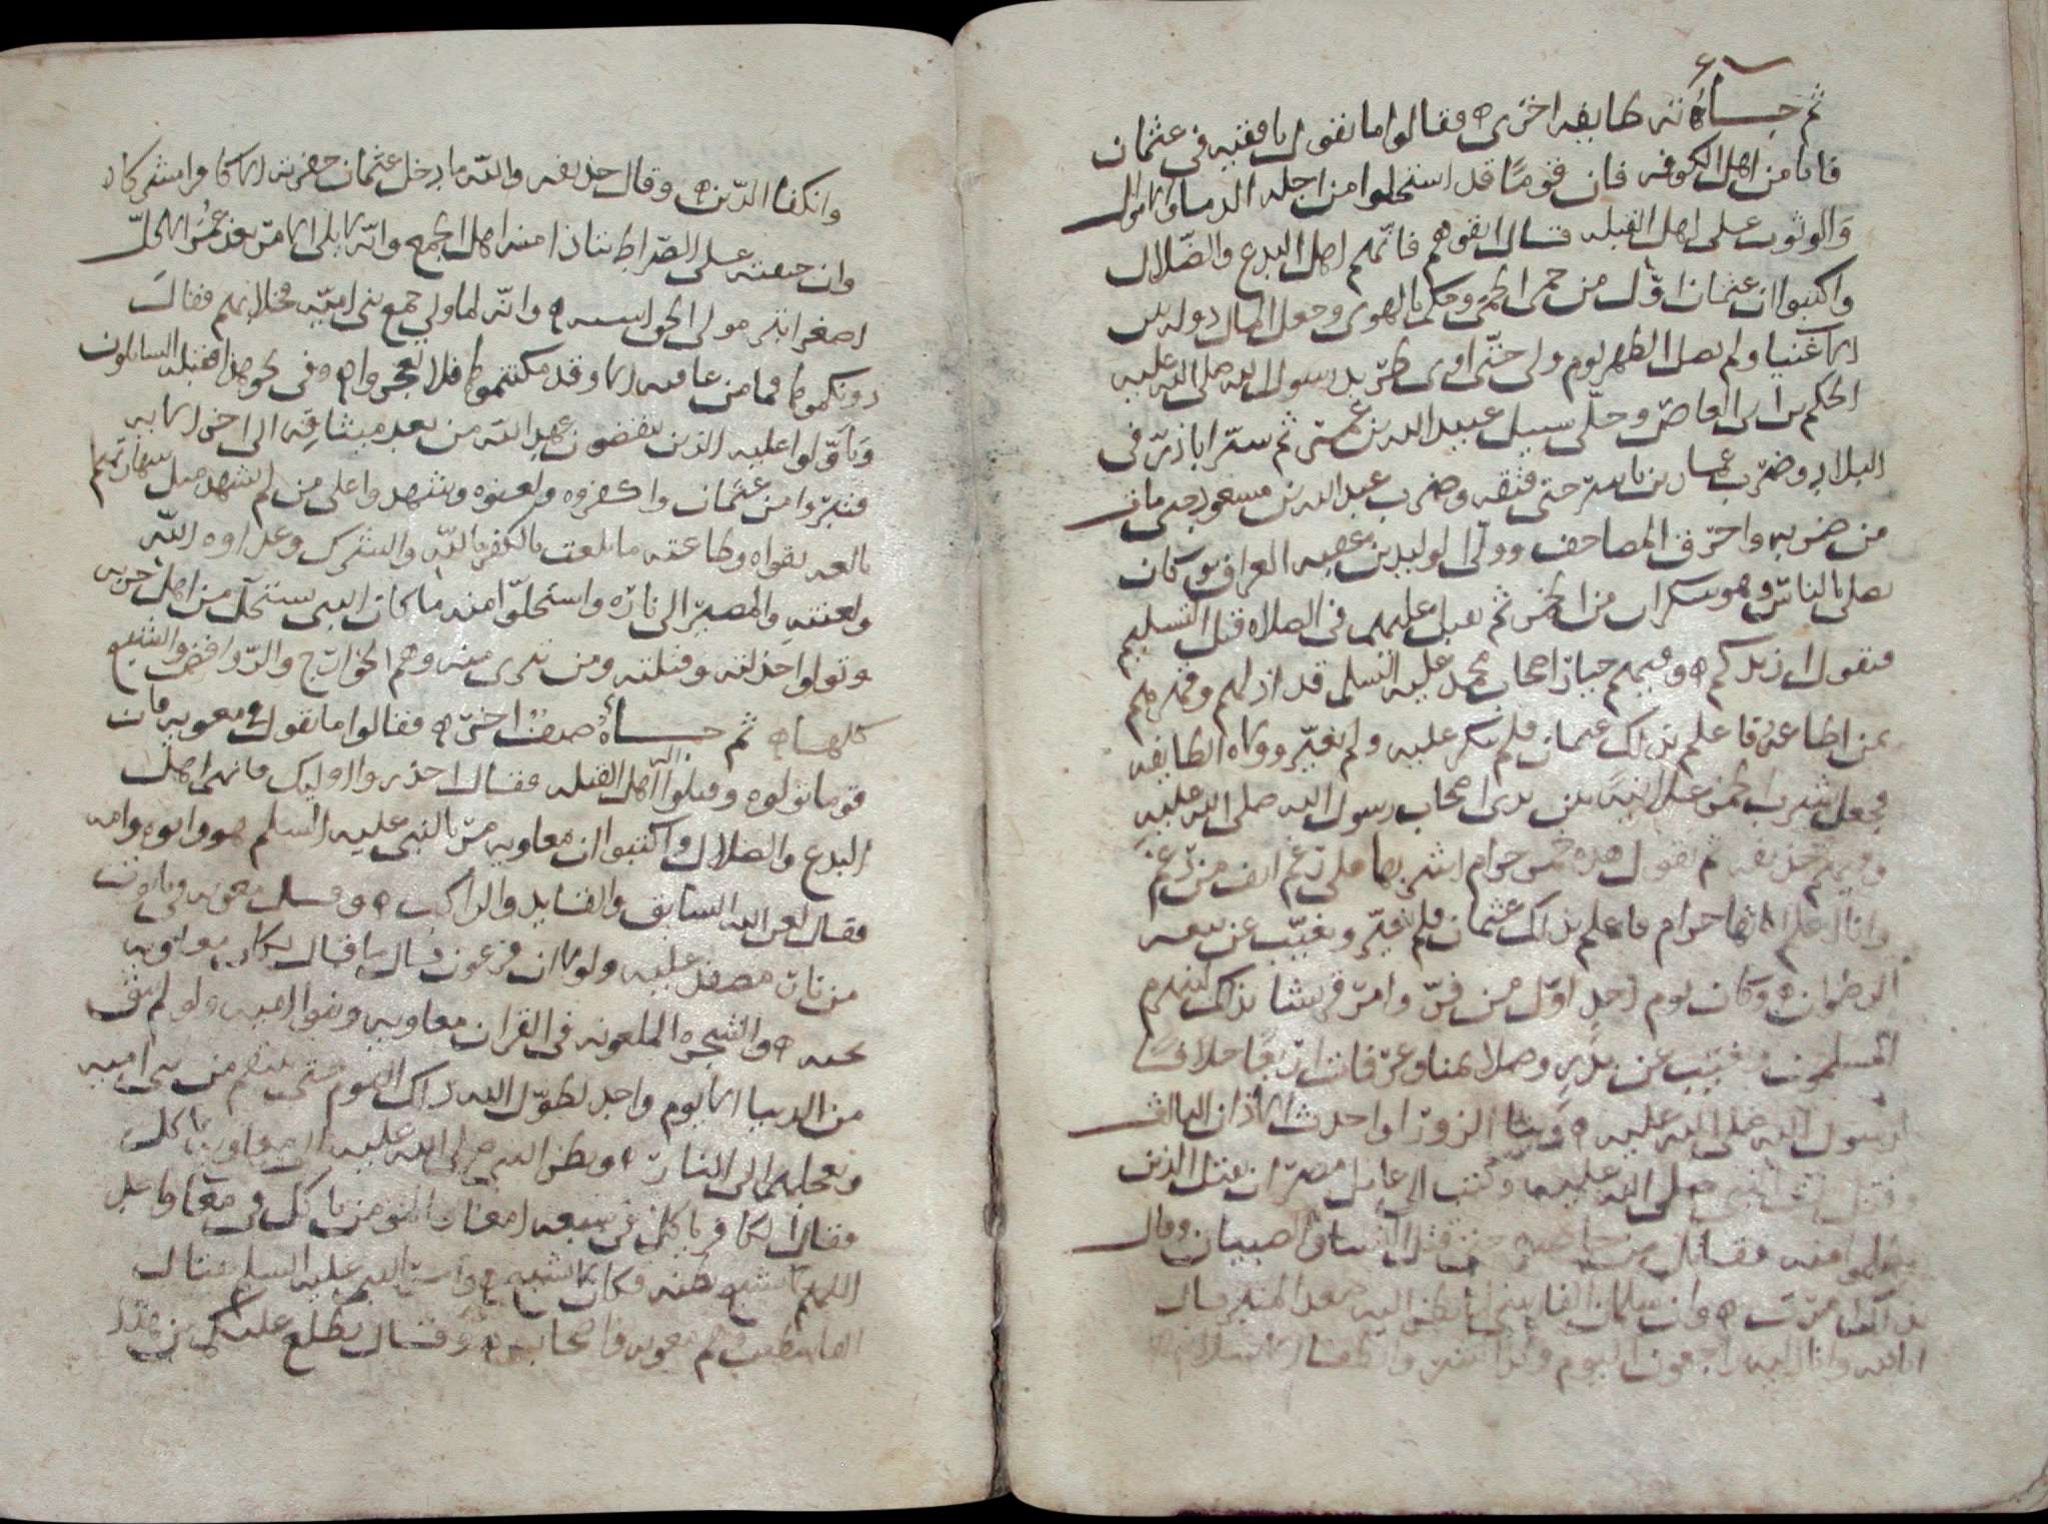 ثم جاءته طايفه اخرى فقالوا ما تقول يا فقيه في عثمان
فانا من اهل الكوفه فان قوما قد استحلوا من اجله الدما والاموال
والوثوب على اهل القبله فقال اتقوهم فانهم اهل البدع والضلال
واكتبوا ان عثمان اول من حمى الحمى وحكم بالهوى وجعل المال دوله بين
الاغنيا ولم يصل الظهر يوم ولي حتى اوى طريد رسول الله صلى الله عليه
الحكم بن ابي العاص وخلى سبيل عبيد الله بن عمر ثم سير ابا ذر في
البلاد وضرب عمار بن ياسر حتى فتقه وضرب عبد الله بن مسعود حتى مات
من ضربه واحرق المصاحف وولى الوليد بن عقبه العراق وكان
يصلي بالناس وهو سكران من الخمر ثم يقبل عليهم في الصلاه قبل التسليم
فيقول ازيدكم وفيهم خيار اصحاب محمد عليه السلم قد اذلهم وقهرهم
بمن اطاعه فاعلم بذلك عثمان فلم ينكر عليه ولم يغير وولاه الطايفه
فجعل شرب الخمر علانيه بين يدي اصحاب رسول الله صلى الله عليه
وفيهم حذيفه ثم يقول هذه خمر حرام اشربها على رغم انف من رغم
وانا اعلم انها حرام فاعلم بذلك عثمان فلم يغير وتغيب عن بيعه
الرضوان وكان يوم احد اول من فر وامر قريشا بذلك لينهزم
المسلمون وتغيب عن بدر وصلى بمنا وعرفات اربعا خلافا
لرسول الله صلى الله عليه وبنا الزورا واحدث الاذان الثالث
وقتل بنت النبي صلى الله عليه وكتب الى عامل مصر ان يقتل الذين
تظلموا منه فقاتل من قتل النسا والصبيان وقال
وان سلمان الفارسي لما نظر اليه صعد المنبر قال
انا لله وانا اليه راجعون اليوم
وانكفا الدين وقال حذيفه والله ما دخل عثمان حفرته الا كافرا مشركا
وان جيفته على الصراط يتاذا منه اهل الجمع وانه لا يلي الامر بعد عمر الا كل
اصغر ابتر مولي الحق استه وانه لما ولي جمع بني اميه فخلا بهم فقال
دونكموها فما من عاقبه الا وقد مكنتموها فلا تعجزوا وفي نحو هذا فتنه السايلون
وتاولوا عليه الذين ينقضون عهد الله من بعد ميثاقه الى اخر الايه
فتبروا من عثمان واكفروه ولعنوه وشهدوا على من لم يشهد مثل شهادتهم
بالعه تقواه وطاعته ما بلغت بالكفر بالله والشرك وعداوه الله
ولعنته والمصير الى ناره واستحلوا منه ما كان النبي يستحل من اهل حربه
وتولوا خذلته وقتلته ومن تبرى منه وهم الخوارج والروافض والشيع
كلها ثم جاءه صنف اخر فقالوا ما تقول في معويه فان
قوما تولوه وقتلوا اهل القبله فقال احذروا اوليك فانهم اهل
البدع والضلال واكتبوا ان معاويه مر بالنبي عليه السلم هو وابوه وامه
فقال لعن الله السايق والقايد والراكب وقيل معويه في تابوت
من نار مقفل عليه ولولا ان فرعون قال ما قال لكان معاويه
تحته والشجره الملعونه في القران معاويه وبنوا اميه ولو لم يبق
من الدنيا الا يوم واحد لطول الله ذلك اليوم حتى ينتقم من بني اميه
ويعجلهم الى النار ونظر النبي صلى الله عليه الى معاويه ياكل
فقال الكافر ياكل في سبعه امعا والمومن ياكل في معا واحد
اللهم لا تشبع بطنه فكان لا يشبع وامر النبي عليه السلم بقتال
القاسطين وهم معويه واصحابه وقال يطلع عليكم من هذا